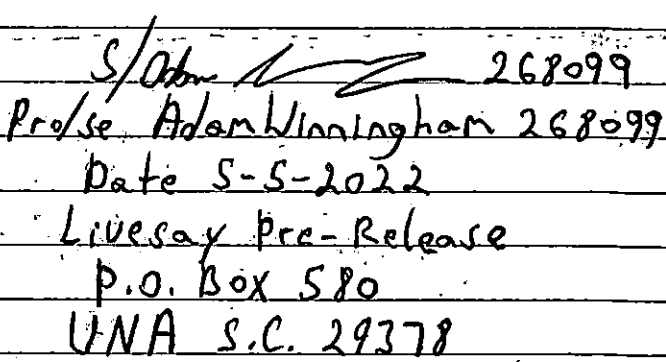 S/Adam 268099
Pro/se Adam Winningham 268099
Date 5-5-2022
Livesay Pre-Release
P.O. Box 580
UNA S.C. 29378